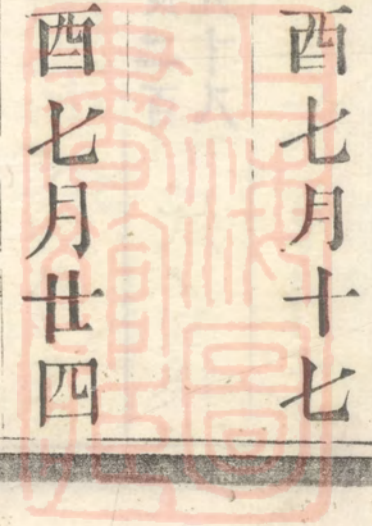 酉七月十七
酉七月廿四